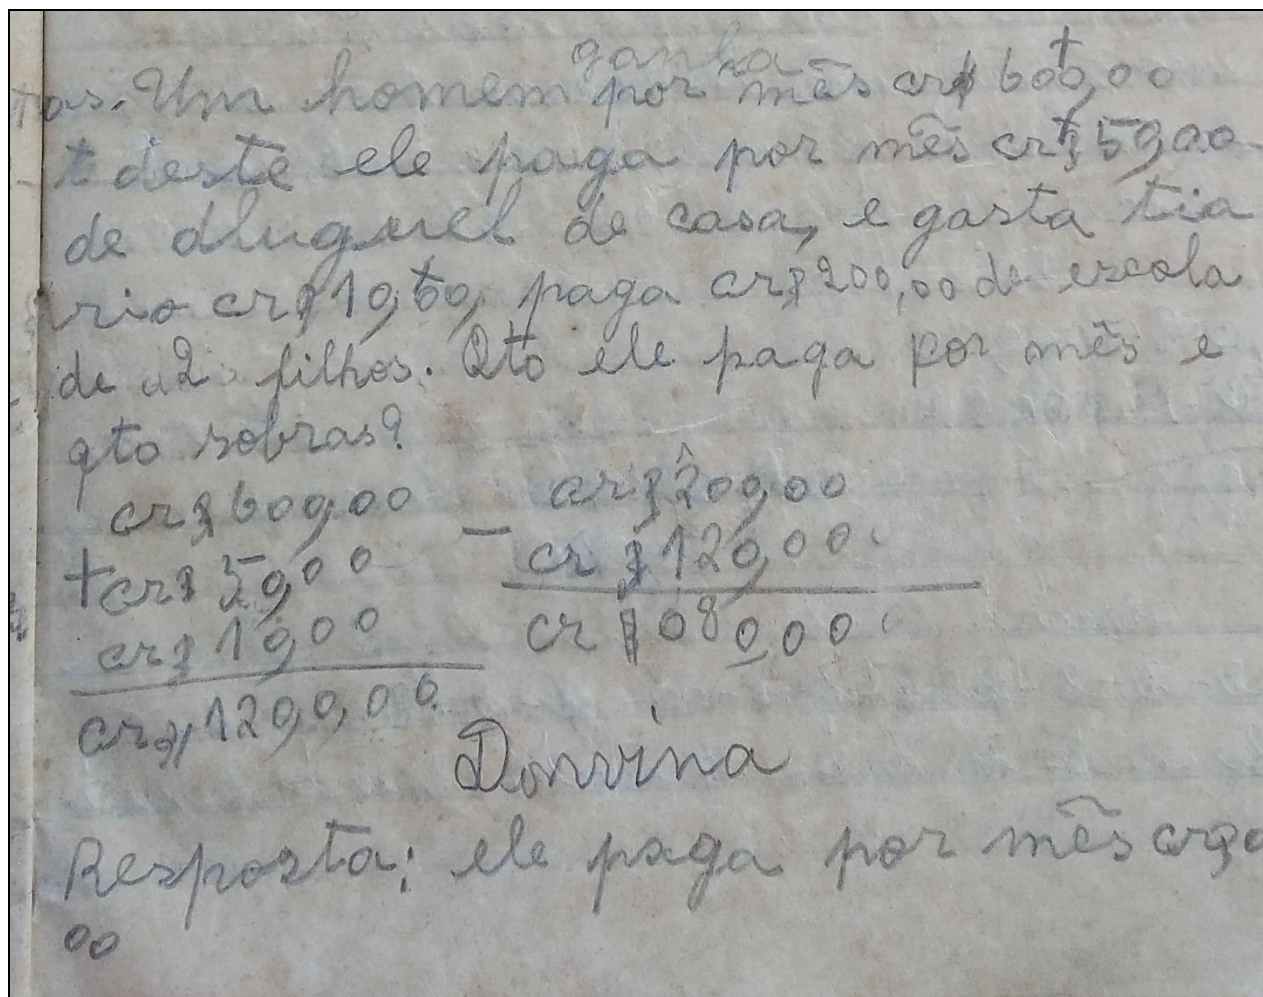 ganha
Um homem por mês cr$ 600,00
deste ele paga por mês cr$ 50,00
de aluguel de casa, e gasta tia
rio cr$ 10,00, paga cr$ 200,00 de escola
de 2 filhos. Qto ele paga por mês e
qto sobras?
cr$ 600,00
+ cr$ 50,00
cr$ 10,00
cr$ 1200,00
cr$ 200,00
- cr$ 120,00
cr$ 080,00
Donvina
Resposta: ele paga por mês
00